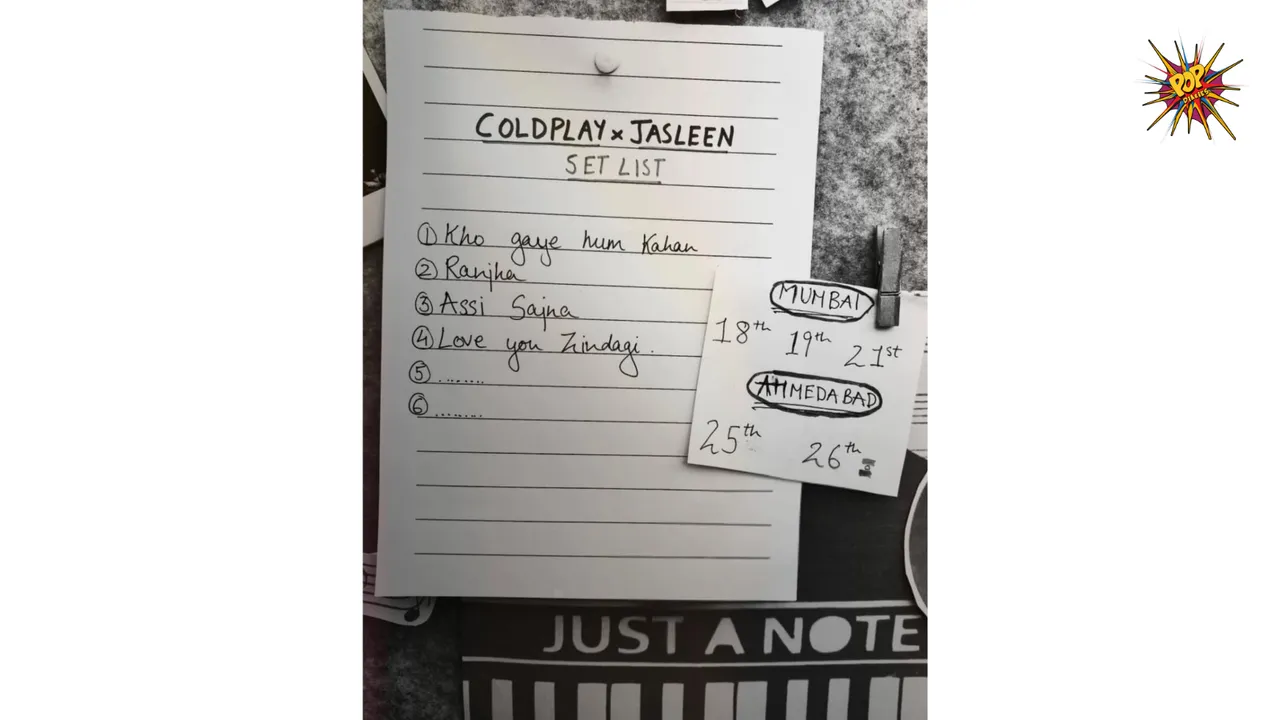 COLDPLAY x JASLEEN
SET LIST
① Kho gaye hum Kahan
② Ranjha
③ Assi Sajna
④ Love you Zindagi.
⑤ ........
⑥ ........
MUMBAI
18th 19th 21st
AHMEDABAD
25th 26th
JUST A NOTE
POP
DIARIES